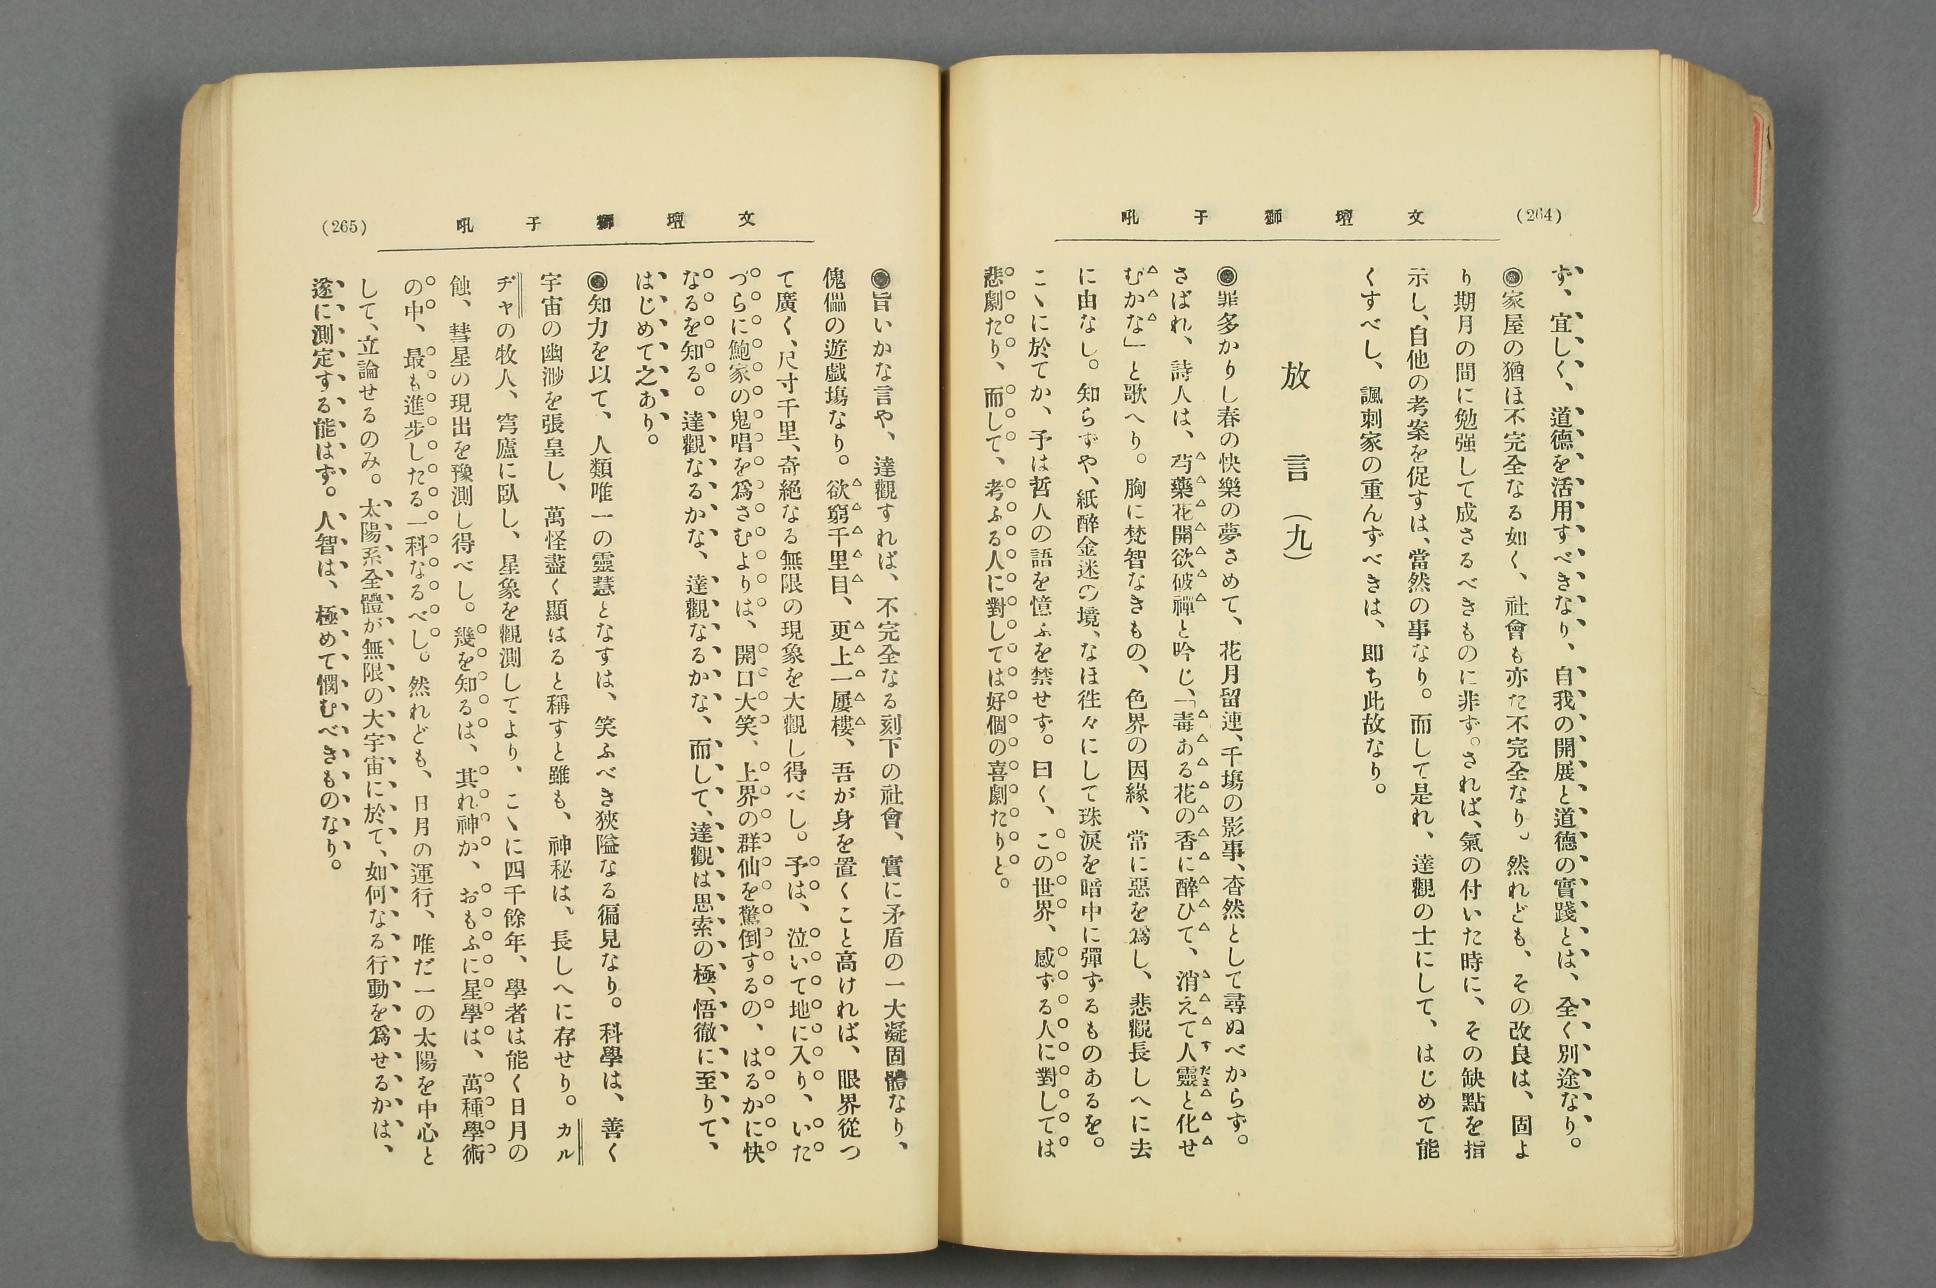 (264)
文壇獅子吼
ず、宜しく、道德を活用すべきなり、自我の開展と道德の實踐とは、全く別途なり。
◉家屋の猶ほ不完全なる如く、社會も亦た不完全なり。然れども、その改良は、固よ
り期月の間に勉强して成さるべきものに非ず。されば、氣の付いた時に、その缺點を指
示し、自他の考案を促すは、當然の事なり。而して是れ、達觀の士にして、はじめて能
くすべし、諷刺家の重んずべきは、即ち此故なり。
放言(九)
◉罪多かりし春の快樂の夢さめて、花月留連、千塲の影事、杳然として尋ぬべからず。
さばれ、詩人は、芍藥花開欲破禪と吟じ、「毒ある花の香に醉ひて、消えて人靈と化せ
すだま
むかな」と歌へり。胸に梵智なきもの、色界の因緣、常に惡を爲し、悲觀長しへに去
に由なし。知らずや、紙醉金迷の境、なほ徃々にして珠淚を暗中に彈ずるものあるを。
こゝに於てか、予は哲人の語を憶ふを禁せず。曰く、この世界、感ずる人に對しては
悲劇たり、而して、考ふる人に對しては好個の喜劇たりと。
(265)
文壇獅子吼
◉旨いかな言や、達觀すれば、不完全なる刻下の社會、實に矛盾の一大凝固體なり、
傀儡の遊戲塲なり。欲窮千里目、更上一層樓、吾が身を置くこと高ければ、眼界從つ
て廣く、尺寸千里、奇絕なる無限の現象を大觀し得べし。予は、泣いて地に入り、いた
づらに鮑家の鬼唱を爲さむよりは、開口大笑、上界の群仙を驚倒するの、はるかに快
なるを知る。達觀なるかな、達觀なるかな、而して、達觀は思索の極、悟徹に至りて、
はじめて之あり。
◉知力を以て、人類唯一の靈慧となすは、笑ふべき狹隘なる徧見なり。科學は、善く
宇宙の幽渺を張皇し、萬怪盡く顯はると稱すと雖も、神秘は、長しへに存せり。カル
ヂヤの牧人、穹廬に臥し、星象を觀測してより、こゝに四千餘年、學者は能く日月の
蝕、彗星の現出を豫測し得べし。幾を知るは、其れ神か、おもふに星學は、萬種學術
の中、最も進步したる一科なるべし。然れども、日月の運行、唯だ一の太陽を中心と
して、立論せるのみ。太陽系全體が無限の大宇宙に於て、如何なる行動を爲せるかは、
遂に測定する能はず。人智は、極めて憫むべきものなり。